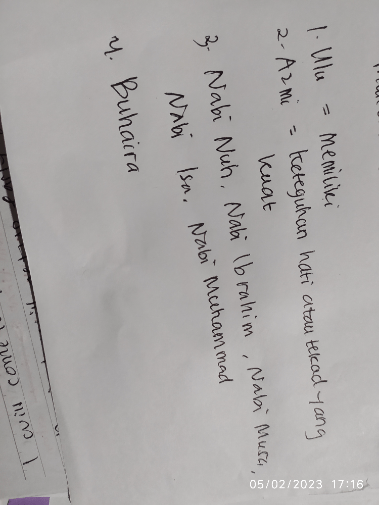 1. Ulu = memiliki
2. Azmi = keteguhan hati atau tekad yang
kuat
3. Nabi Nuh, Nabi Ibrahim, Nabi Musa,
Nabi Isa, Nabi Muhammad
4. Buhaira
05/02/2023 17:16